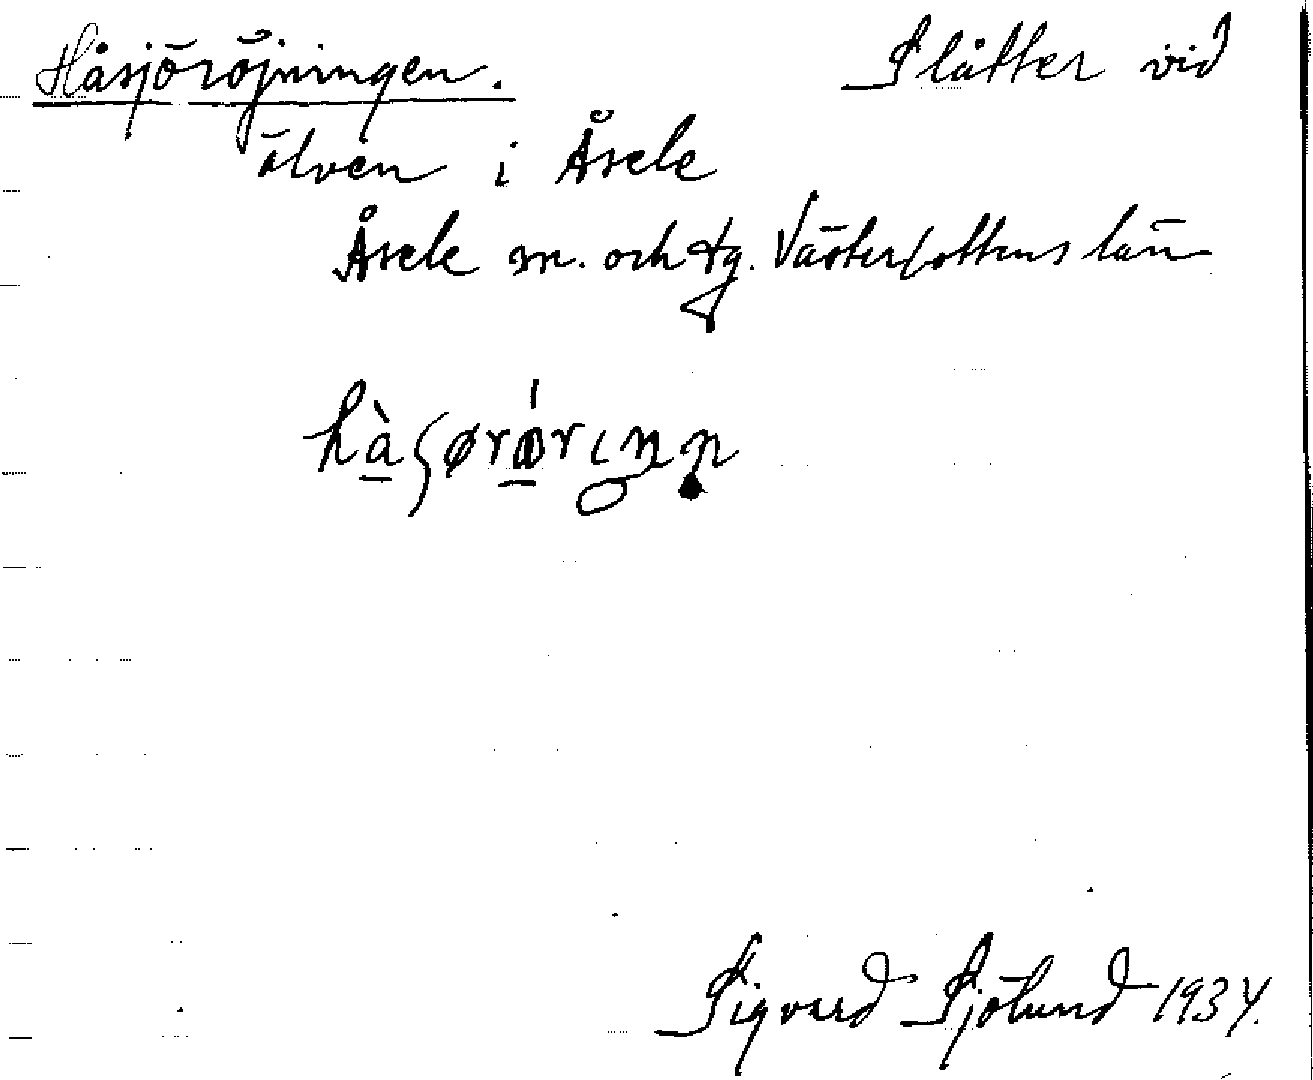 Håsjöröjningen. Slåtter vid
älven i Åsele
Åsele sn. och tg. Västerbottens län
Sigvard Sjölund 1934.